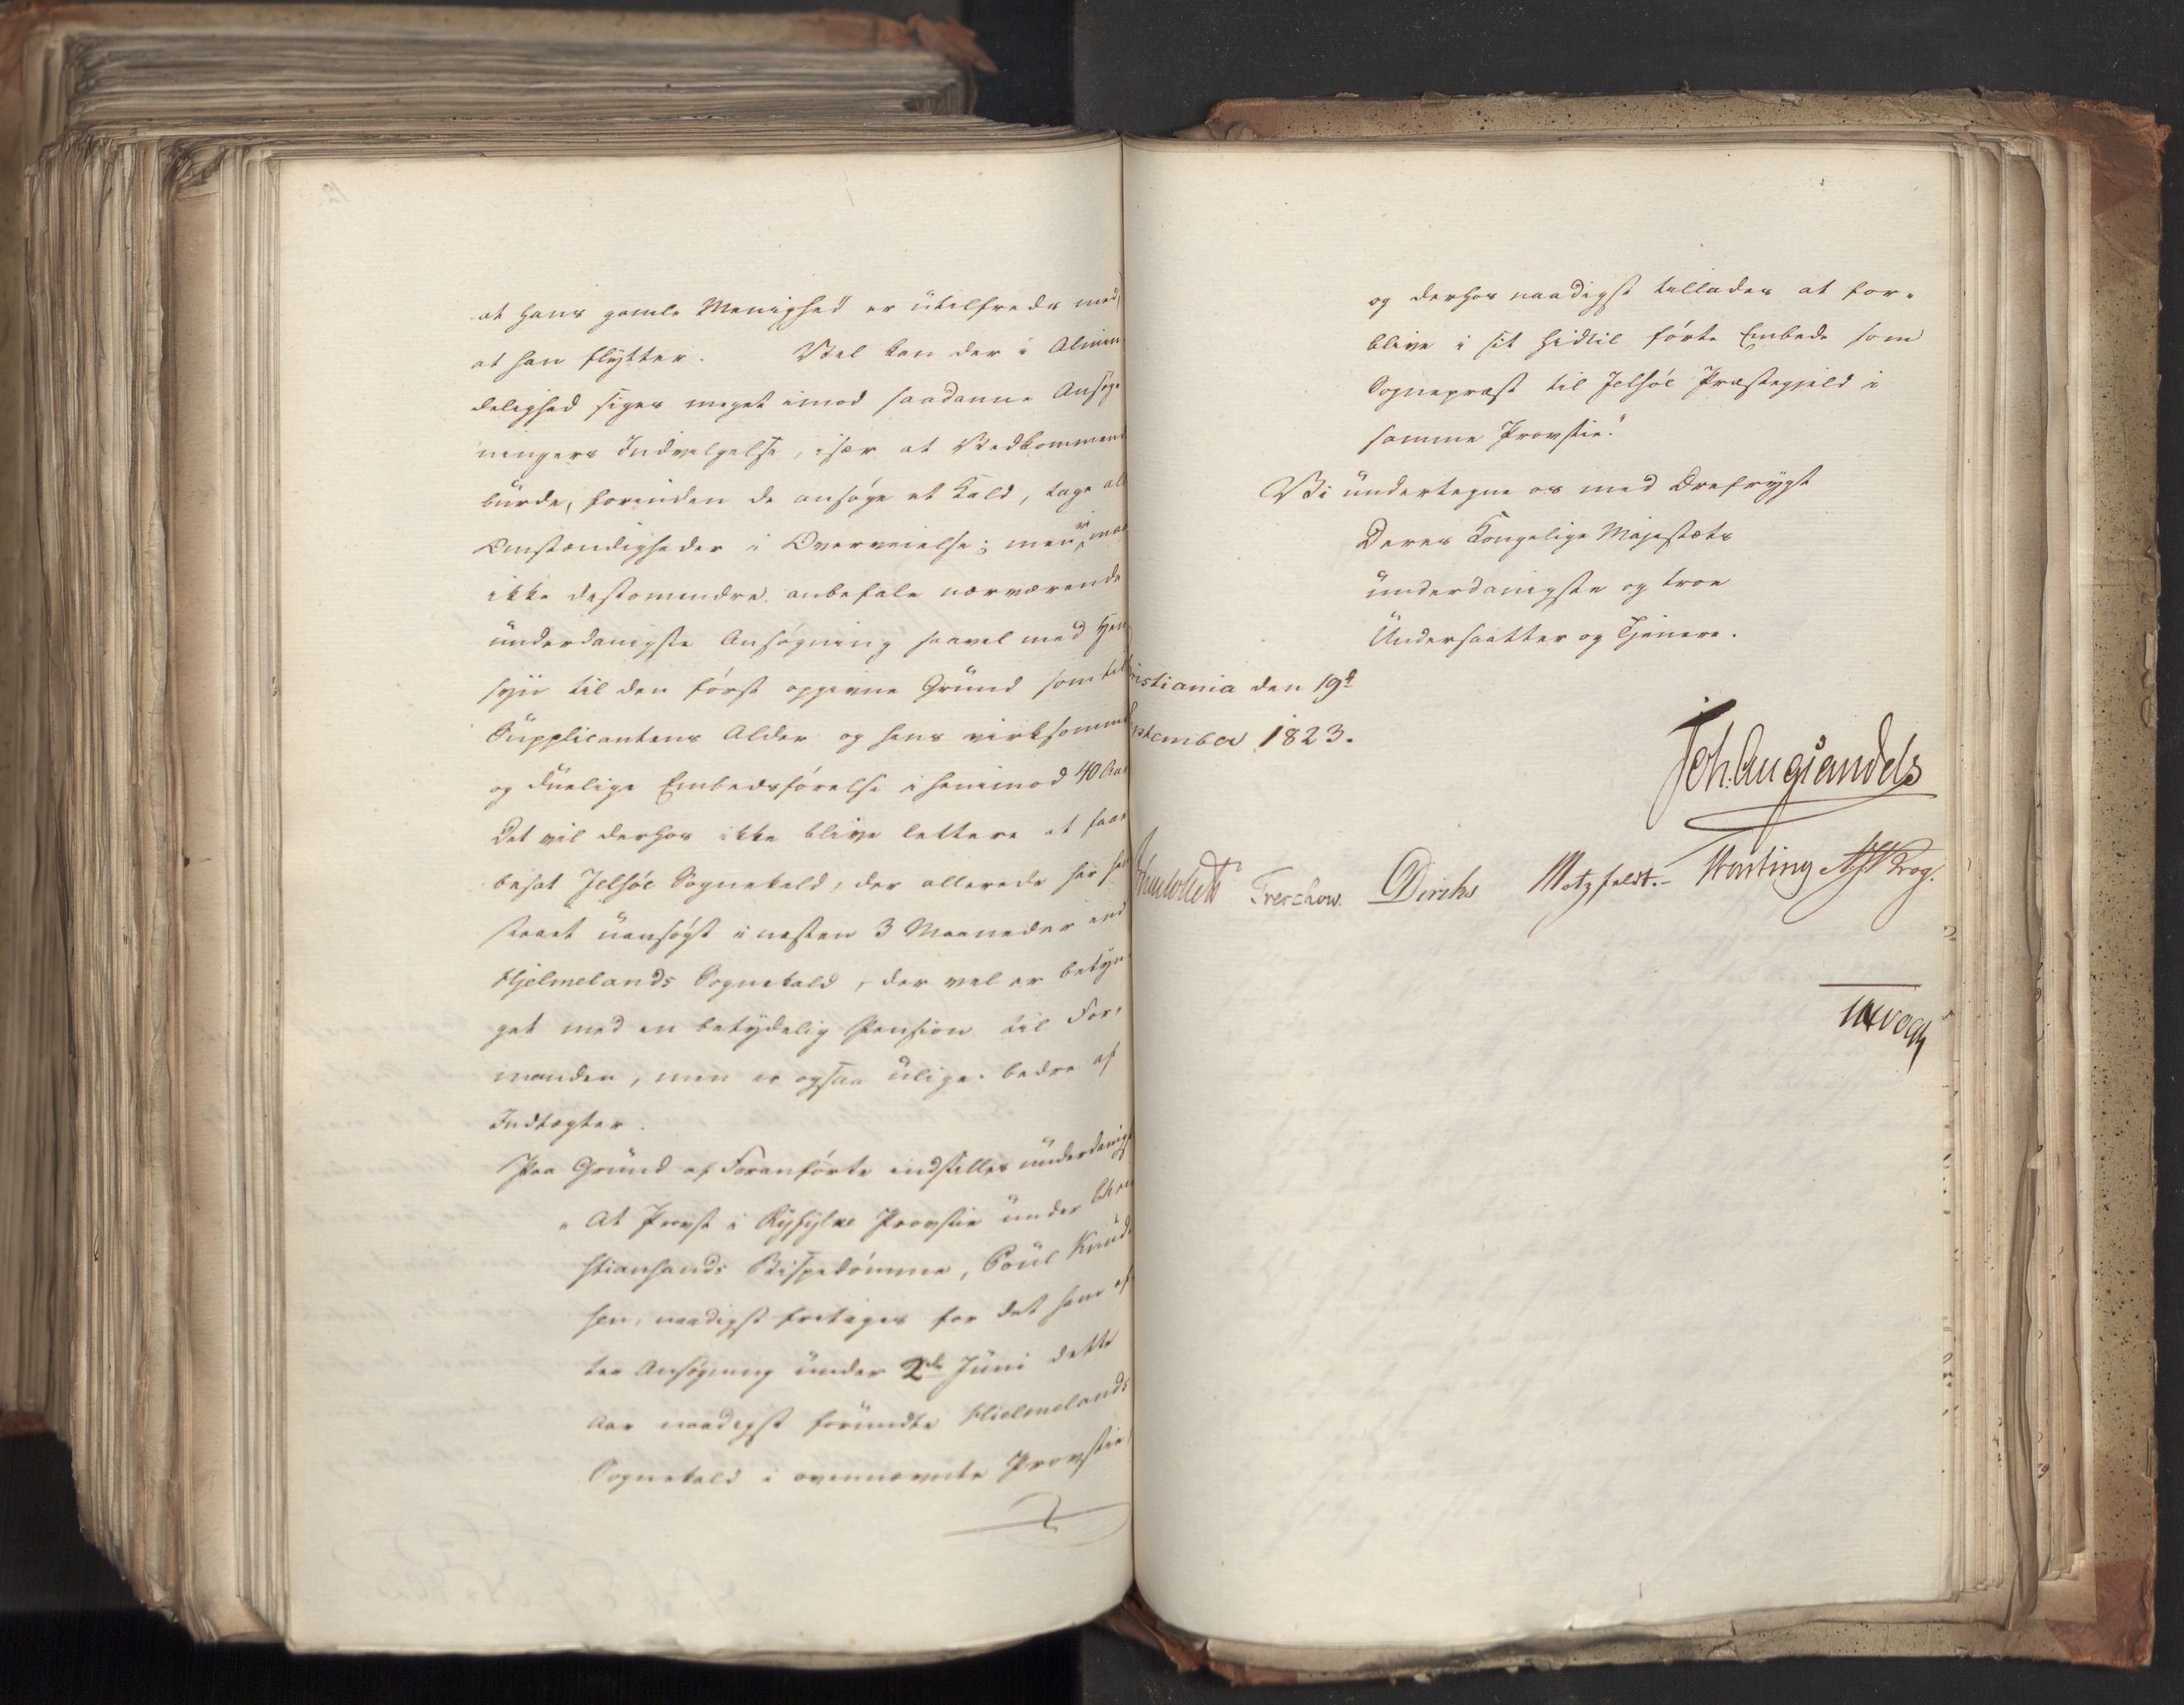 at hans gamle Menighed er utilfreds med,
at han flytter. Vel kan der i Almin
delighed siges meget imod saadanne Ansøg
ningers Indvilgelse, især at Vedkommend
burde, forinden de ansøge et Kald, tage all
Omstændigheder i Overveielse; men vi maa
ikke destomindre anbefale nærværende
underdanigste Ansøgning saavel med Hen
syn til den først opgivne Grund som til
Supplicantens Alder og hans virksomme
og duelige Embedsførelse i henimod 40 Aar
Det vil derhos ikke blive lettere at faae
besat Jelsøe Sognekald, der allerede har
staaet uansøgt i næsten 3 Maaneder end
Hjelmelands Sognekald, der vel er betyn
get med en betydelig Pension til For-
manden, men er ogsaa ulige bedre af
Indtægter.
Paa Grund af Foranførte indstilles underdanigst
"At Provst i Ryfylke Provstie under Chri
stiansands Bispedømme, Poul Knud
sen, naadigst fritages for det ham ef
ter Ansøgning under 2de Juni dette
Aar naadigst forundte Hielmelands
Sognekald i ovennævnte Provstie,
og derhos naadigst tillades at for-
blive i sit hidtil førte Embede som
Sognepræst til Jelsøe Præstegjeld i
samme Provstie."
Vi undertegne os med Ærefrygt
Deres Kongelige Majestæts
underdanigste og troe
Undersaatter og Tjenere.
ristiania den 19d
ptember 1823.
Joh. Aug Sandels
Treschow. Diriks Motzfeldt.- Krog.